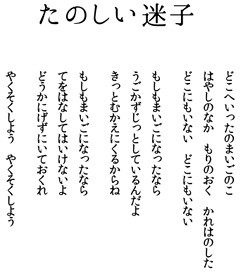 たのしい迷子
どこへいったのまいごのこ
はやしのなか　もりのおく　かれはのした
どこにもいない　どこにもいない
もしもまいごになったなら
うごかずじっとしているんだよ
きっとむかえにくるからね
もしもまいごになったなら
てをはなしてはいけないよ
どうかにげずにいておくれ
やくそくしよう　やくそくしよう